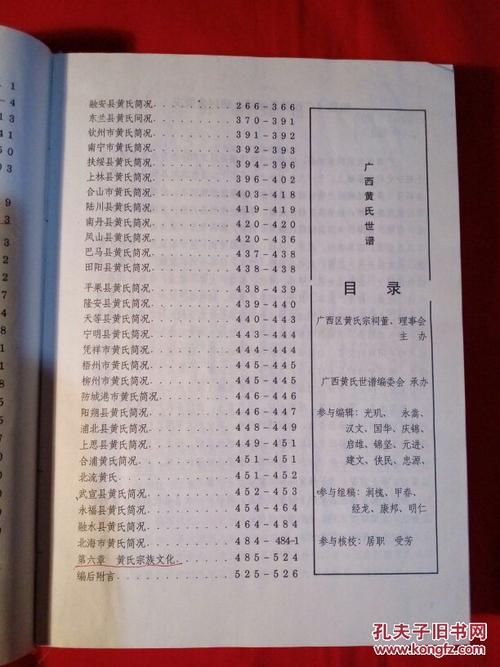 融安县黄氏简况 266-366
东兰县黄氏间况 370-391
钦州市黄氏简况 391-392
南宁市黄氏简况 392-393
扶绥县黄氏简况 394-396
上林县黄氏简况 396-402
合山市黄氏简况 403-418
陆川县黄氏简况 419-419
南丹县黄氏简况 420-420
凤山县黄氏简况 420-436
巴马县黄氏简况 437-438
田阳县黄氏简况 438-438
平果县黄氏简况 438-439
隆安县黄氏简况 439-440
天等县黄氏简况 440-443
宁明县黄氏简况 443-444
凭祥市黄氏简况 444-444
梧州市黄氏简况 445-445
柳州市黄氏简况 445-445
防城港市黄氏简况 446-446
阳朔县黄氏简况 446-447
浦北县黄氏简况 448-449
上思县黄氏简况 449-451
合浦黄氏简况 451-451
北流黄氏 451-452
武宣县黄氏简况 452-453
永福县黄氏简况 454-464
融水县黄氏简况 464-484
北海市黄氏简况 484-484-1
第六章 黄氏宗族文化 485-524
编后附言 525-526
广西黄氏世谱
目录
广西区黄氏宗祠董、理事会
主办
广西黄氏世谱编委会 承办
参与编辑：光玑、永嵩、
汉文、国华、庆锦、
启雄、锦坚、元进、
建文、侠民、忠源、
参与组稿：润槐、甲春、
经龙、康邦、明仁
参与核校：居职 受芳
1
4
13
41
50
93
9
3
孔夫子旧书网